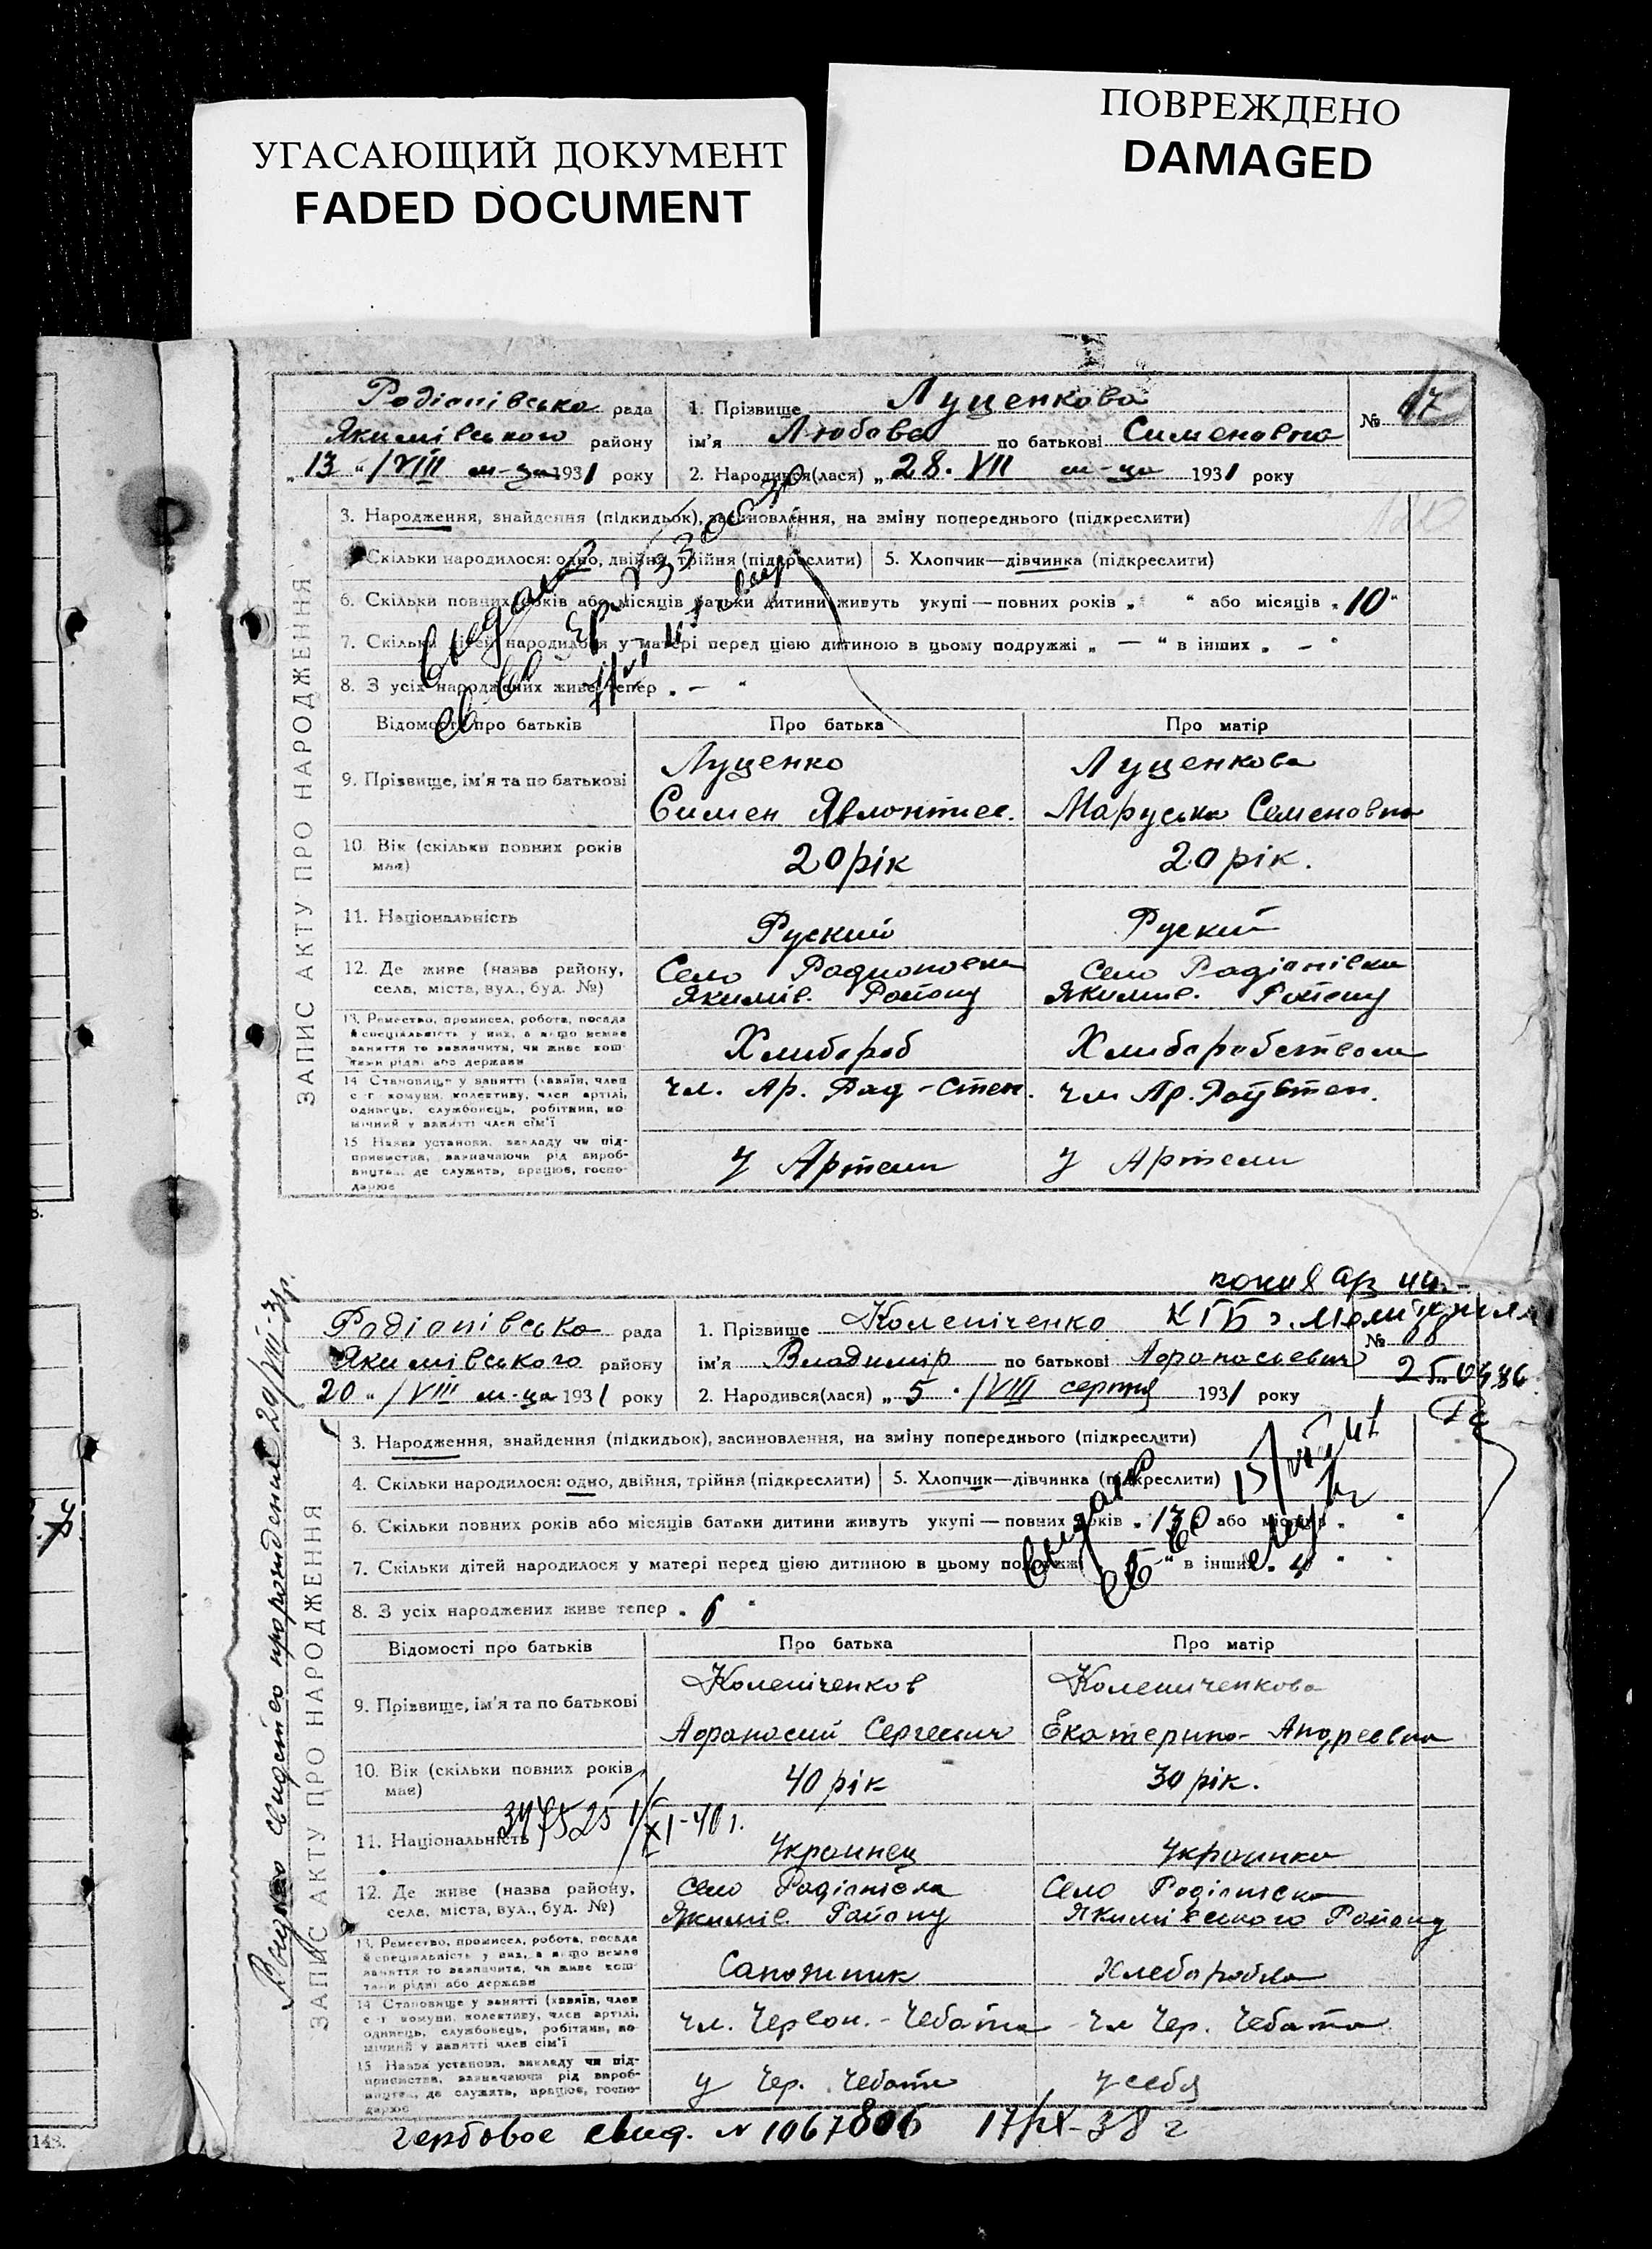 УГАСАЮЩИЙ ДОКУМЕНТ
FADED DOCUMENT
ПОВРЕЖДЕНО
DAMAGED
ЗАПИС АКТУ ПРО НАРОДЖЕННЯ
Родіонівська рада
Якимівського району
„13“/VIII м-ця 1931 року
1. Прізвище Луценкова
ім'я Любова по батькові Сименовна
№ 67
2. Народився(лася) „28. VII м-ця 1931 року
3. Народження, знайдення (підкидьок), засиновлення, на зміну попереднього (підкреслити)
Скільки народилося: одно, двійня, трійня (підкреслити) 5. Хлопчик—дівчинка (підкреслити)
6. Скільки повних років або місяців батьки дитини живуть укупі — повних років „ “ або місяців „10“
7. Скільки дітей народилося у матері перед цією дитиною в цьому подружжі „ — “ в інших „ — “
8. З усіх народжених живе тепер „ — “
Відомості про батьків Про батька Про матір
9. Прізвище, ім'я та по батькові
Луценко Луценкова
Симен Явлонтиев. Маруська Семеновна
10. Вік (скільки повних років має) 20 рік 20 рік.
11. Національність Руский Руский
12. Де живе (назва району, села, міста, вул., буд. №)
Село Радионовка Село Радіонівка
Якимів. Району Якимів. Району
13. Ремество, промисел, робота, посада й спеціальність у них, а якщо немає заняття то зазначити, чи живе коштами рідні або держави
Хлибороб Хлиборобством
14. Становище у занятті (хазяїн, член с-г комуни, колективу, член артілі, одинець, службовець, робітник, помічний у занятті член сім'ї
чл. Ар. Рад-Степ. чл Ар. Рад Степ.
15. Назва установи, закладу чи підприємства, зазначаючи рід виробництва, де служить, працює, господарює
у Артели у Артели
копия
КГБ г. Мелитополя
ЗАПИС АКТУ ПРО НАРОДЖЕННЯ
Родіонівська рада
Якимівського району
20 “/VIII м-ця 1931 року
1. Прізвище Колепіченко
ім'я Владимір по батькові Афонасьевич
№ 68
2. Народився(лася) „5. /VIII серпня 1931 року
3. Народження, знайдення (підкидьок), засиновлення, на зміну попереднього (підкреслити)
4. Скільки народилося: одно, двійня, трійня (підкреслити) 5. Хлопчик—дівчинка (підкреслити)
6. Скільки повних років або місяців батьки дитини живуть укупі — повних років „13 або місяців „ “
7. Скільки дітей народилося у матері перед цією дитиною в цьому подружжі “ в інших „ “
8. З усіх народжених живе тепер „ “
Відомості про батьків Про батька Про матір
9. Прізвище, ім'я та по батькові
Колепіченков Колепиченкова
Афонасий Сергеевич Екатерина Андреевна
10. Вік (скільки повних років має) 40 рік 30 рік.
347525 XI-40 г.
11. Національність Украинец Украинка
12. Де живе (назва району, села, міста, вул., буд. №)
Село Радіонівка Село Радіонівка
Якимів. Району Якимівського Району
13. Ремество, промисел, робота, посада й спеціальність у них, а якщо немає заняття то зазначити, чи живе коштами рідні або держави
Сапожник Хлебаробка
14. Становище у занятті (хазяїн, член с-г комуни, колективу, член артілі, одинець, службовець, робітник, помічний у занятті член сім'ї
чл. Червон.-Чебота чл Чер. Чебота
15. Назва установи, закладу чи підприємства, зазначаючи рід виробництва, де служить, працює, господарює
у Чер. Чебота у себя
гербовое свид. N 1067806 17/IX-38 г
Выдано свидетво про рождение 20/VIII-31р.
143.